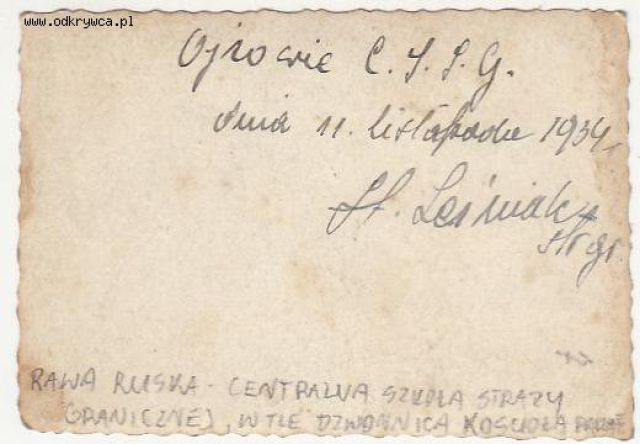 www.odkrywca.pl
Ojrowie C.S.S.G.
dnia 11. listopada 1934 r.
St. Leśniak
str gr.
RAWA RUSKA - CENTRALNA SZKOŁA STRAŻY
GRANICZNEJ, W TLE DZWONNICA KOŚCIOŁA